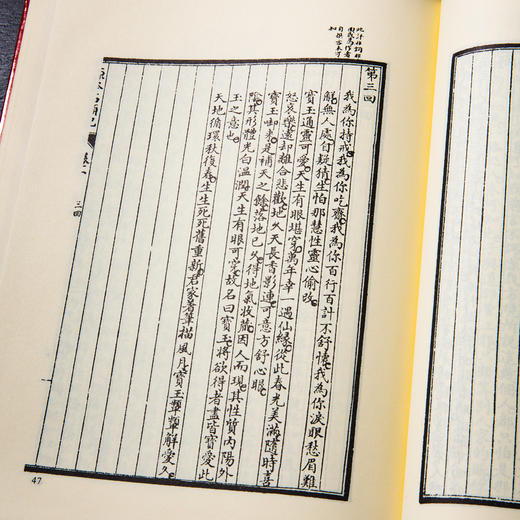 第三回
我為你持戒我為你吃齋我為你百行百計不舒懷我為你淚眼愁眉難
解無人處自疑猜生怕那慧性靈心偷改
寶玉通靈可愛天生有眼堪穿萬年幸一遇仙緣從此春光美滿隨時喜
怒哀樂遠却離合悲歡地久天長香影連可意方舒心眼
寶玉啣來是補天之餘落地已久得地氣收藏因人而現其性質內陽外
陰其形體光白溫潤天生有眼可穿故名曰寶玉將欲得者盡皆寶愛此
玉之意也
天地循環秋復春生生死死舊重新君家著筆描風月寶玉顰顰解愛人
三回
47